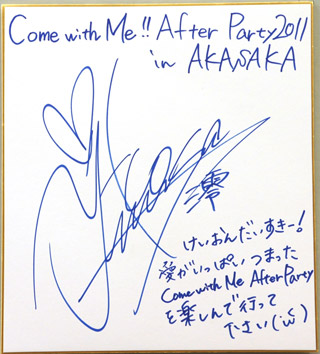 Come with Me!! After Party 2011
in AKASAKA
澪
けいおんだいすきー!
愛がいっぱいつまった
Come with Me After Party
を楽しんで行って
下さい